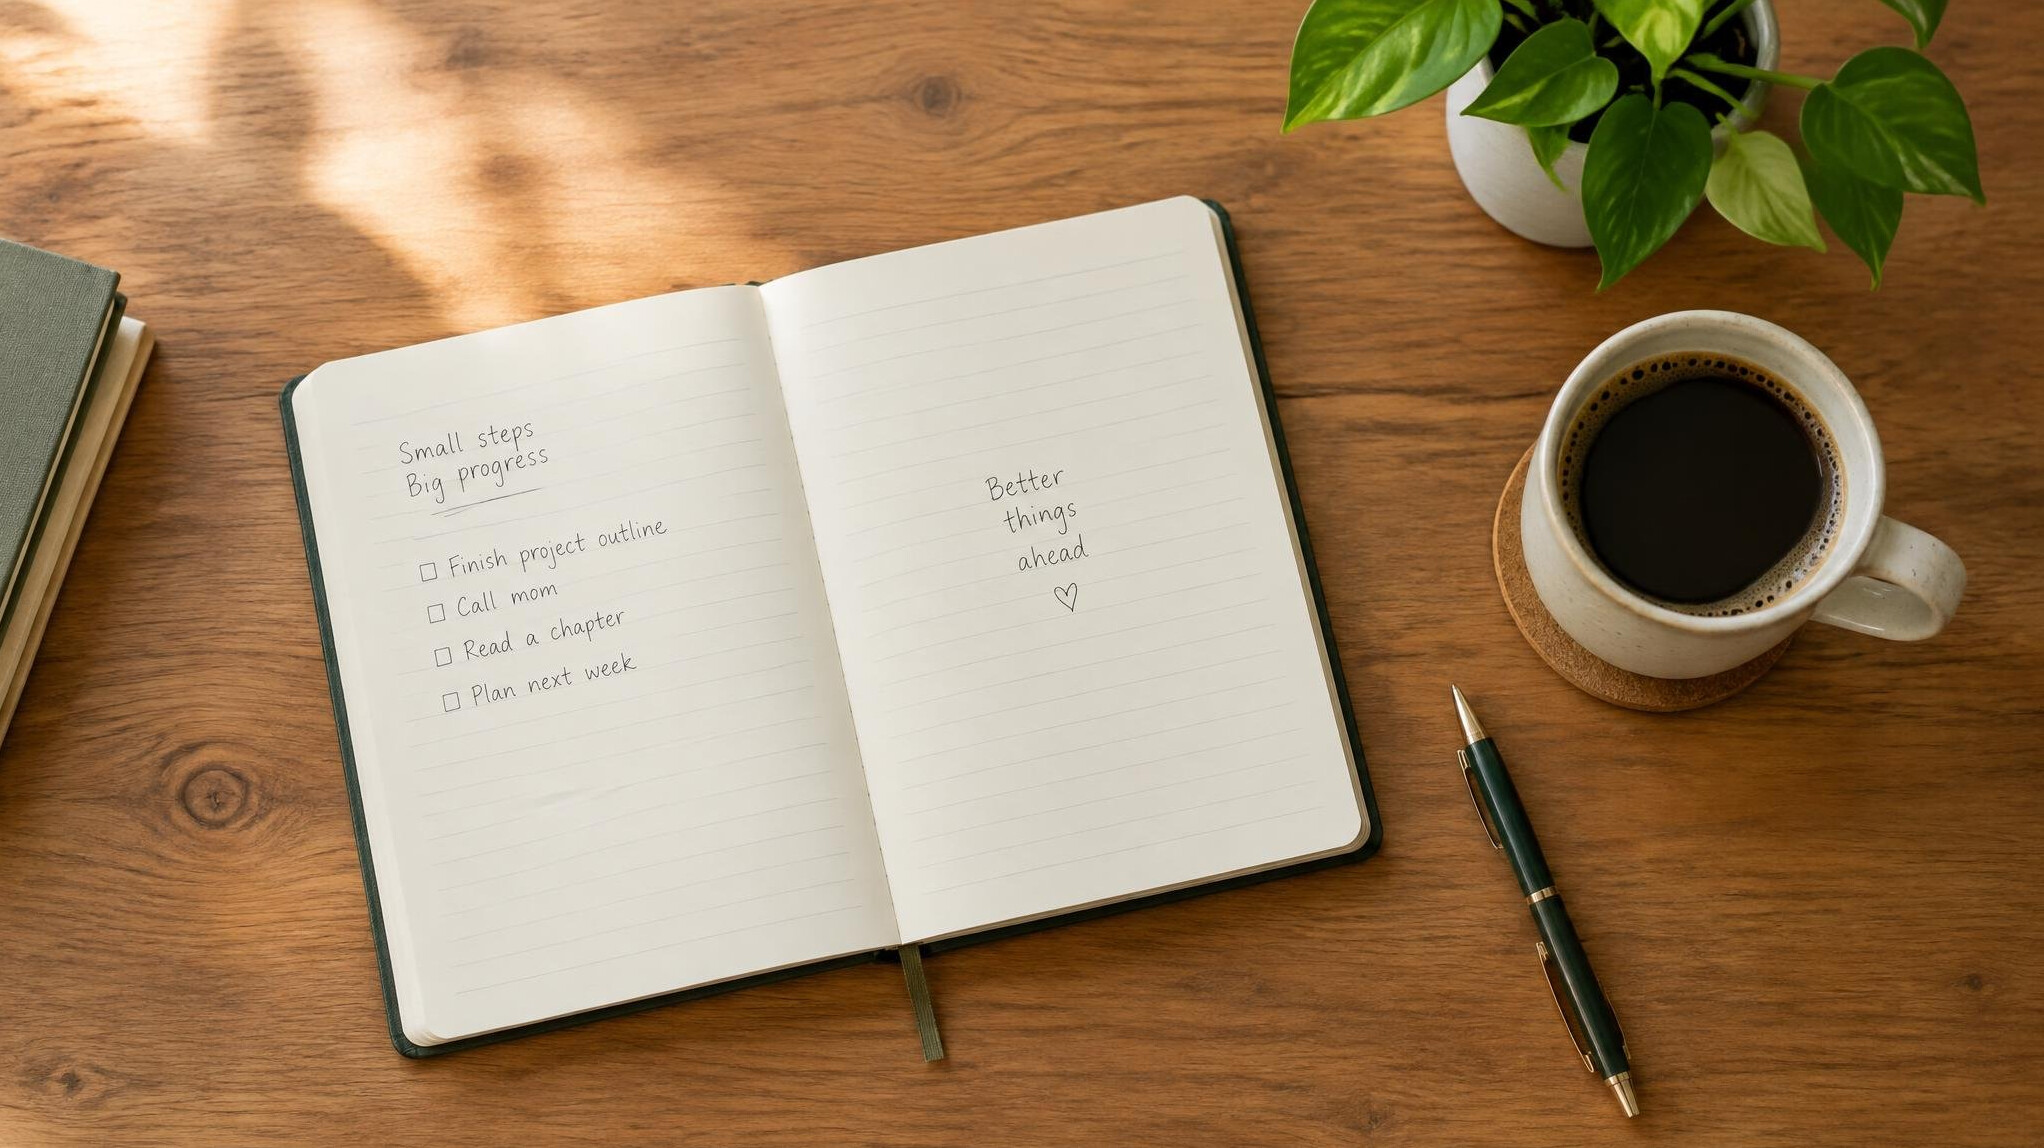 Small steps
Big progress
☐ Finish project outline
☐ Call mom
☐ Read a chapter
☐ Plan next week
Better
things
ahead
♡